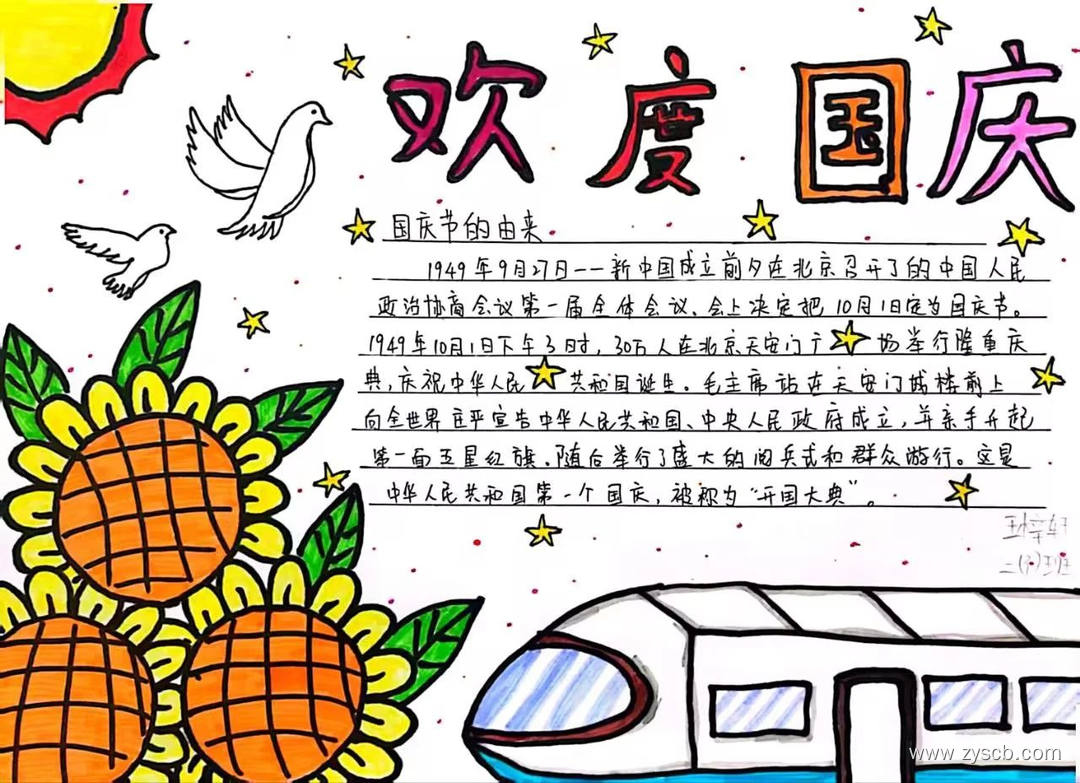 欢度国庆
国庆节的由来
1949年9月27日——新中国成立前夕在北京召开了的中国人民
政治协商会议第一届全体会议、会上决定把10月1日定为国庆节。
1949年10月1日下午3日时,30万人在北京天安门广场举行隆重庆
典,庆祝中华人民共和国诞生。毛主席站在天安门城楼前上
向全世界庄严宣告中华人民共和国、中央人民政府成立,并亲手升起
第一面五星红旗.随后举行了盛大的阅兵式和群众游行。这是
中华人民共和国第一个国庆,被称为“开国大典”。
www.zyscb.com